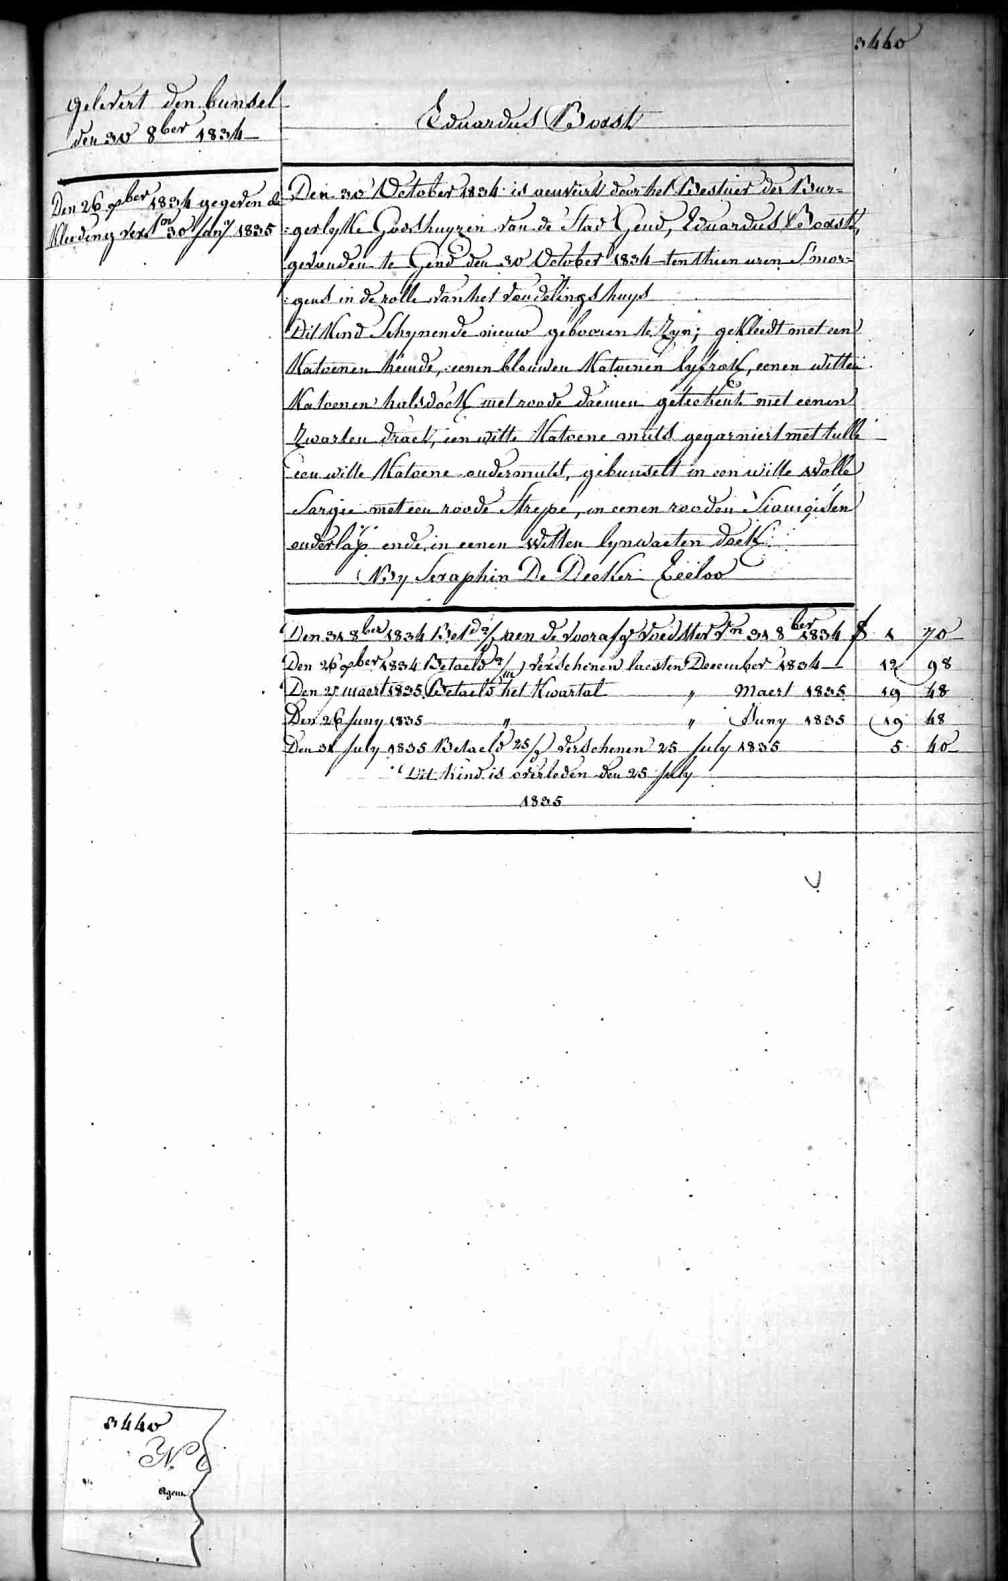 3440
gelevert den bunsel
den 30 8ber 1834
Eduardus Boost
Den 26 9ber 1834 gegeven de
Kleeding verst 30 Jany 1835
Den 30 October 1834 is aenveird door het Bestier der Bur-
gerlyke Godshuyzen van de Stad Gend, Eduardus Boost,
gevonden te Gend den 30 October 1834 ten thien uren S'mor-
gens in de rolle van het vondelingshuys
Dit Kind Schynende nieuw gebooren te Zyn; gekleedt met een
Katoenen hemde, eenen blauwen Katoenen lyfrok, eenen witten
Katoenen halsdoek met roode daemen geteekent met eenen
Zwarten draet, een witte Katoene muts gegarniert met tulle
een witte Katoene ondermuts, gebunselt in een witte wolle
Sargie met een roode Strepe, in eenen rooden
onderlap ende in eenen Witten lynwaeten doek
By Seraphin De Decker Eecloo
Den 31 8ber 1834 Betd a/f aen de voorafg Voedster Vn 31 8ber 1834 f 1 70
Den 26 9ber 1834 Betaeld a/f verschenen laesten December 1834 12 98
Den 27 maert 1835 Betaeld het Kwartal " Maert 1835 19 48
Den 26 Juny 1835 " " Juny 1835 19 48
Den 31 July 1835 Betaeld 25/f verschenen 25 July 1835 5 40
Dit Kind is overleden den 25 July
1835
3440
N.
Agem